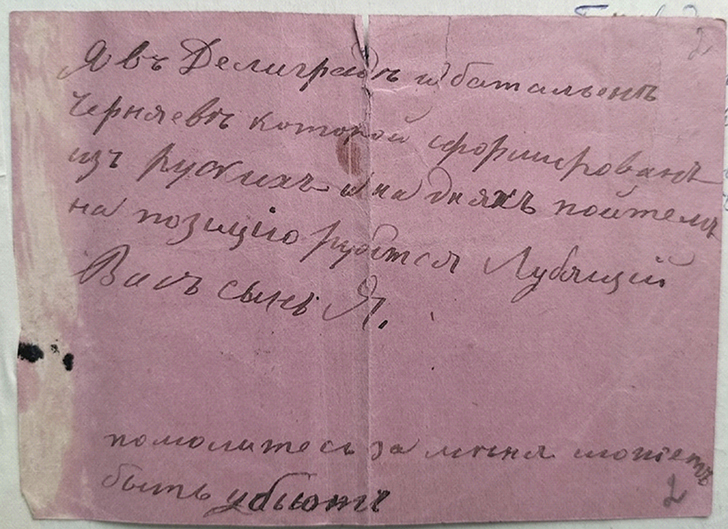 2
Я въ Делиградъ и батальенъ
Черняевъ которой сформированъ
изъ Рускихъ и на дняхъ пойтемъ
на позицію рубтся Лубящій
Васъ сынъ Я.
помолитесь за меняможетъ
быть убьютъ
2